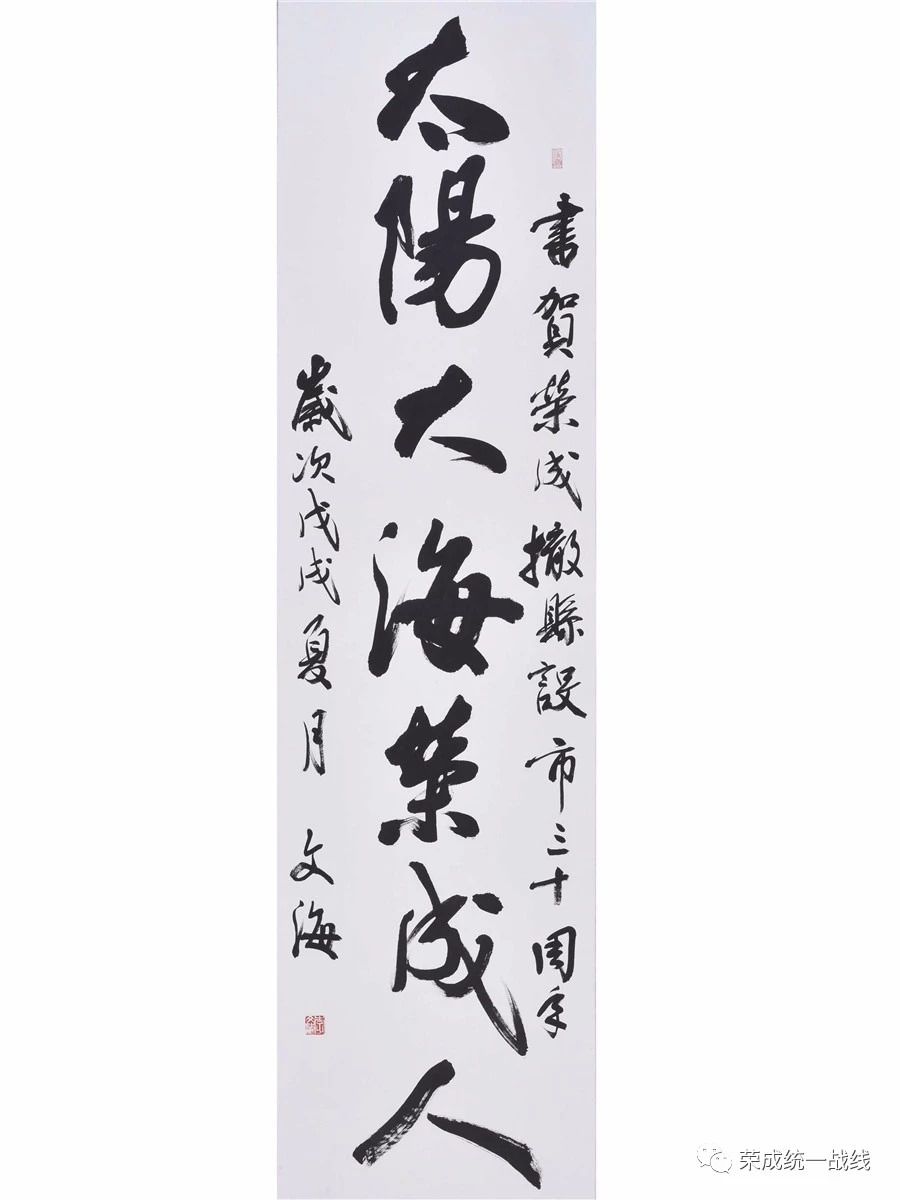 書賀榮成撤縣設市三十周年
太陽大海榮成人
歲次戊戌夏月
文海
荣成统一战线